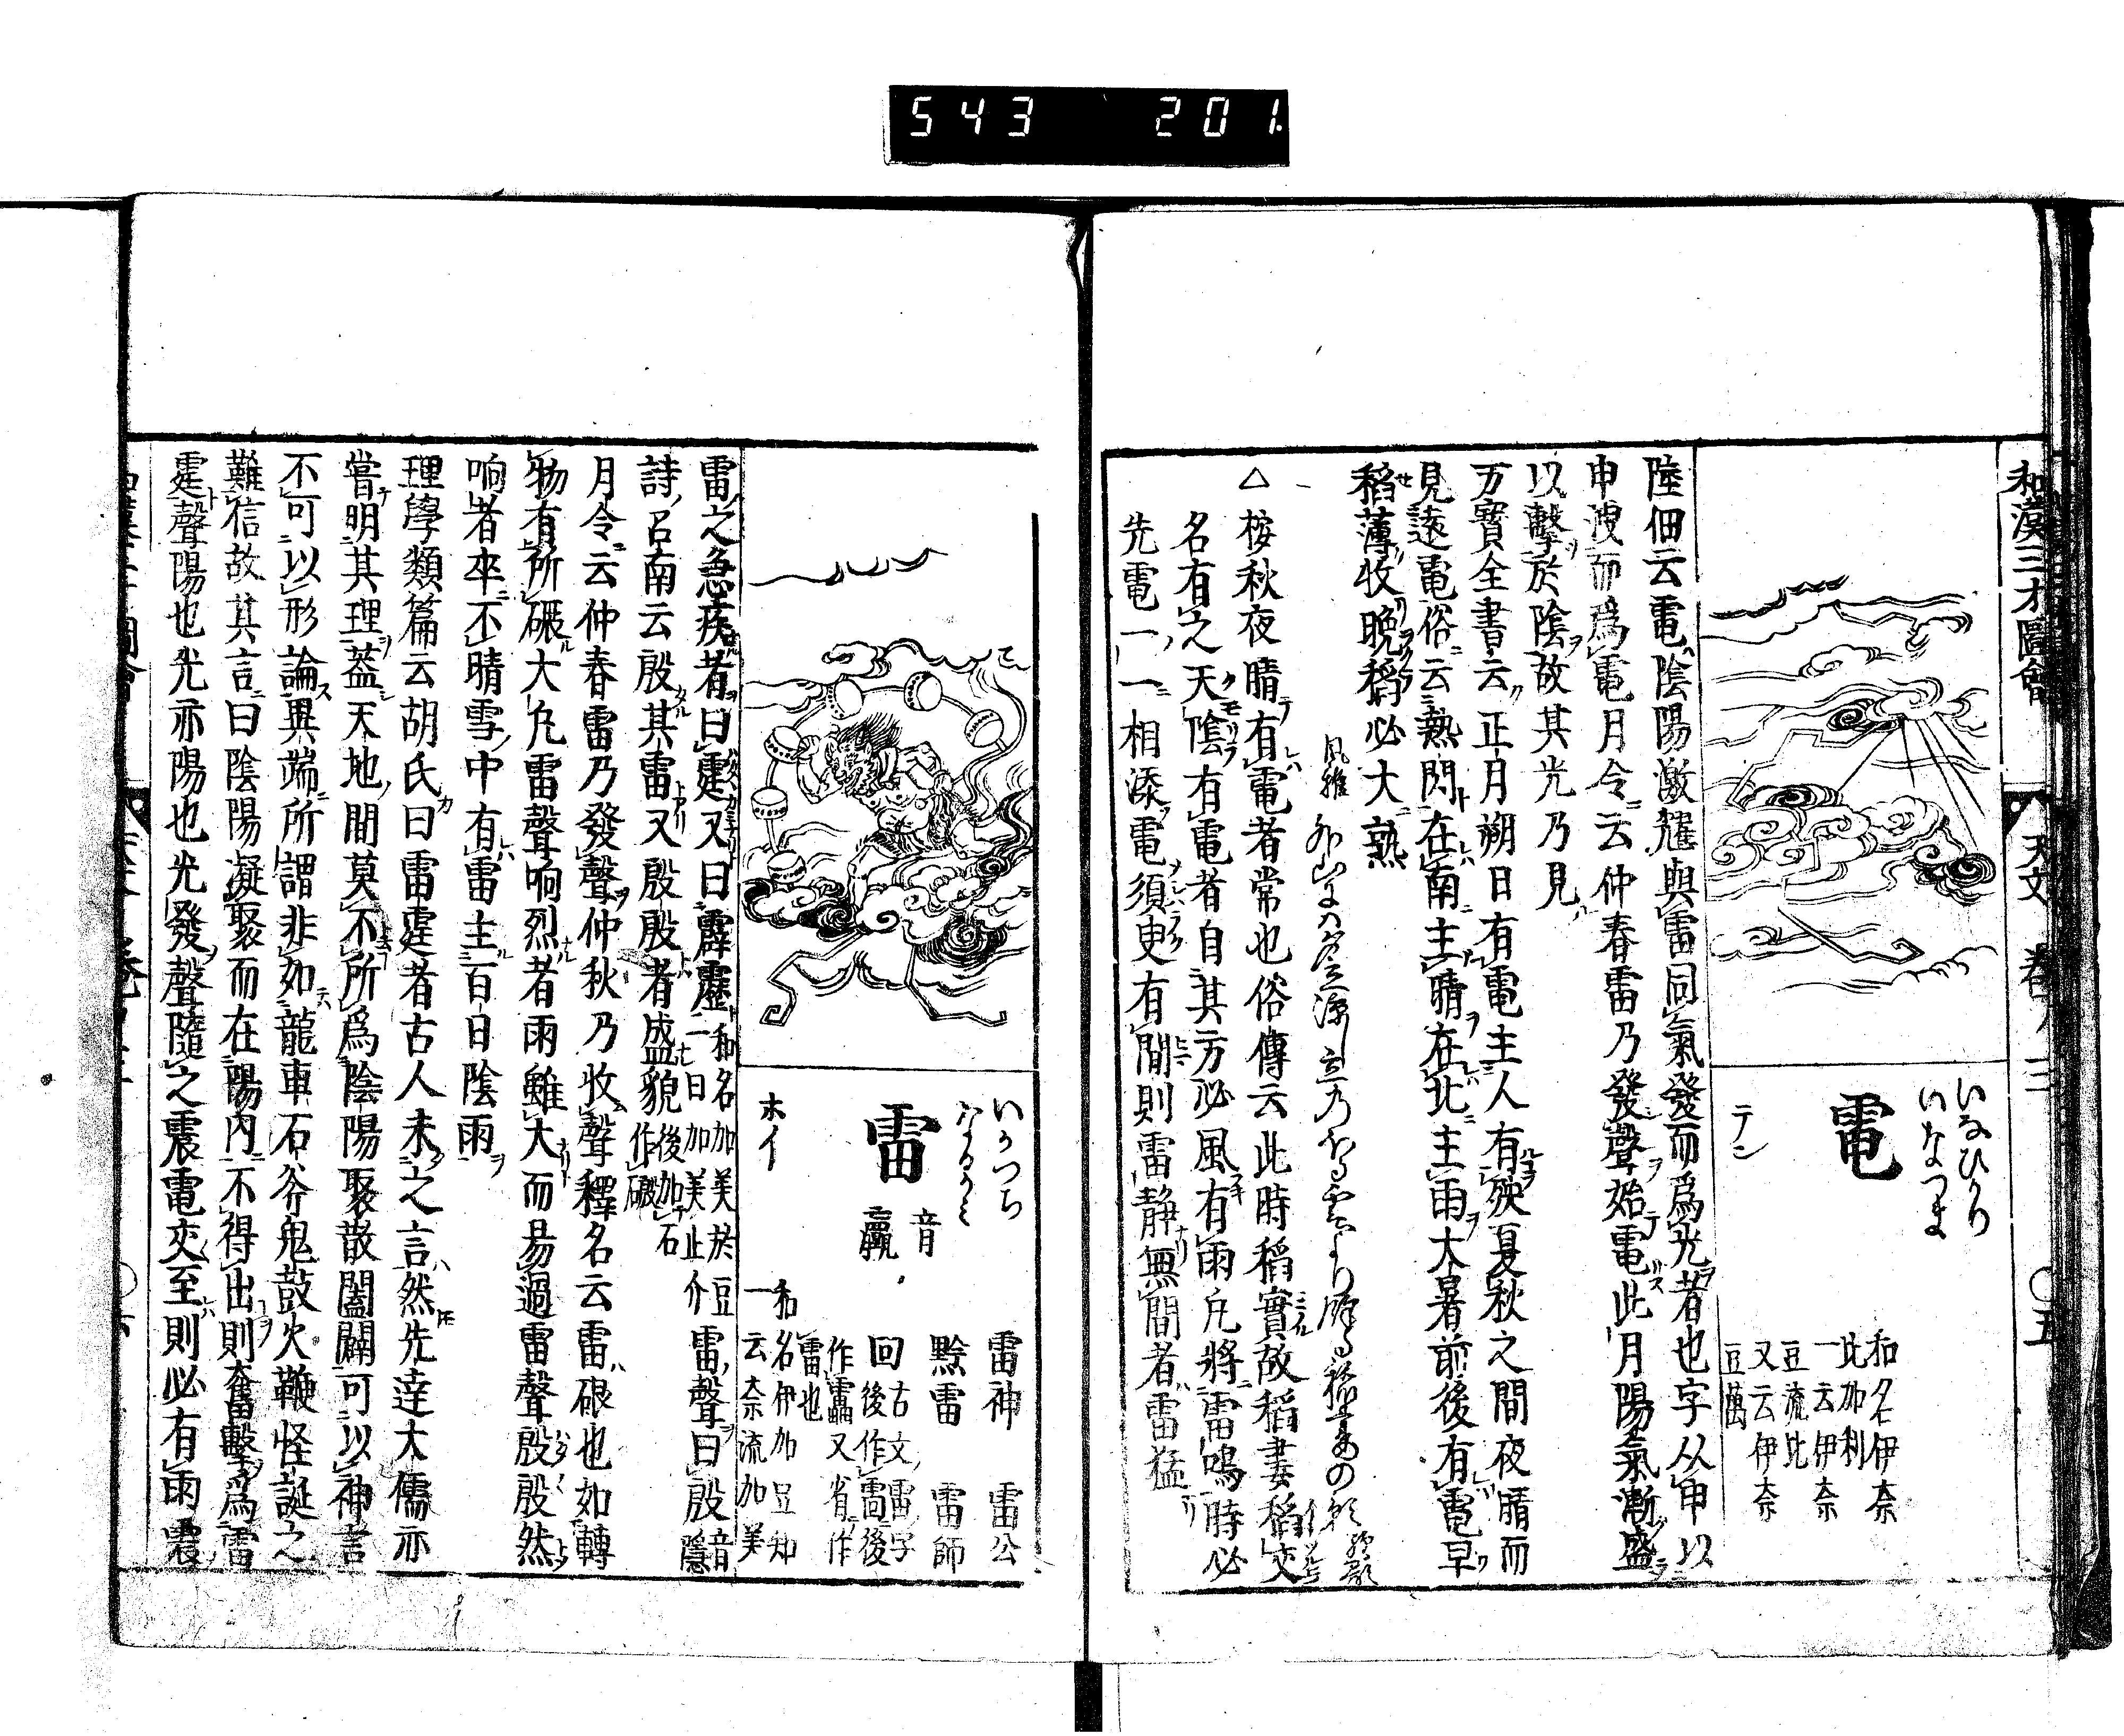 543 201.
和漢三才圖會 天文 卷ノ三 〇五
いなひかり
いなつま
電
テン
和名伊奈
比加利
一云伊奈
豆流比
又云伊奈
豆萬
陸佃云電陰陽激耀與雷同氣發而爲光者也字从申以
申洩而爲電月令云仲春雷乃發聲始電此月陽氣漸盛
以擊於陰故其光乃見
万寳全書云正月朔日有電主人有殃夏秋之間夜晴而
見遠電俗云熱閃在南主晴在北主雨大暑前後有電早
稻薄收晚稻必大熟
風雅
△桉秋夜晴有電者常也俗傳云此時稻實故稻妻稻交
名有之天陰有電者自其方必風有雨凡將雷鳴時必
先電一一相添電須臾有間則雷静無間者雷猛
いかつち
なるかみ
雷
音
羸
ホイ
雷神 雷公
黔雷 雷師
回 古文雷字
後作䨓後
作靁又省作
雷也
和名伊加豆知
一云奈流加美
雷之急疾者曰霆又曰霹靂 和名加美於豆
一曰加美止介 雷聲曰殷 音隱
後加石
作磤
詩召南云殷其雷又殷殷者盛貌
月令云仲春雷乃發聲仲秋乃收聲釋名云雷硍也如轉
物有所硍大凡雷聲响烈者雨雖大而易過雷聲殷殷然
响者卒不晴雪中有雷主百日陰雨
理學類篇云胡氏曰雷霆者古人未之言然先達大儒亦
嘗明其理葢天地間莫不所爲陰陽聚散闔闢可以神言
不可以形論異端所謂非如龍車石斧鬼鼓火鞭怪誕之
難信故其言曰陰陽凝聚而在陽内不得出則奮擊爲雷
霆聲陽也光亦陽也光發聲隨之震電交至則必有雨震